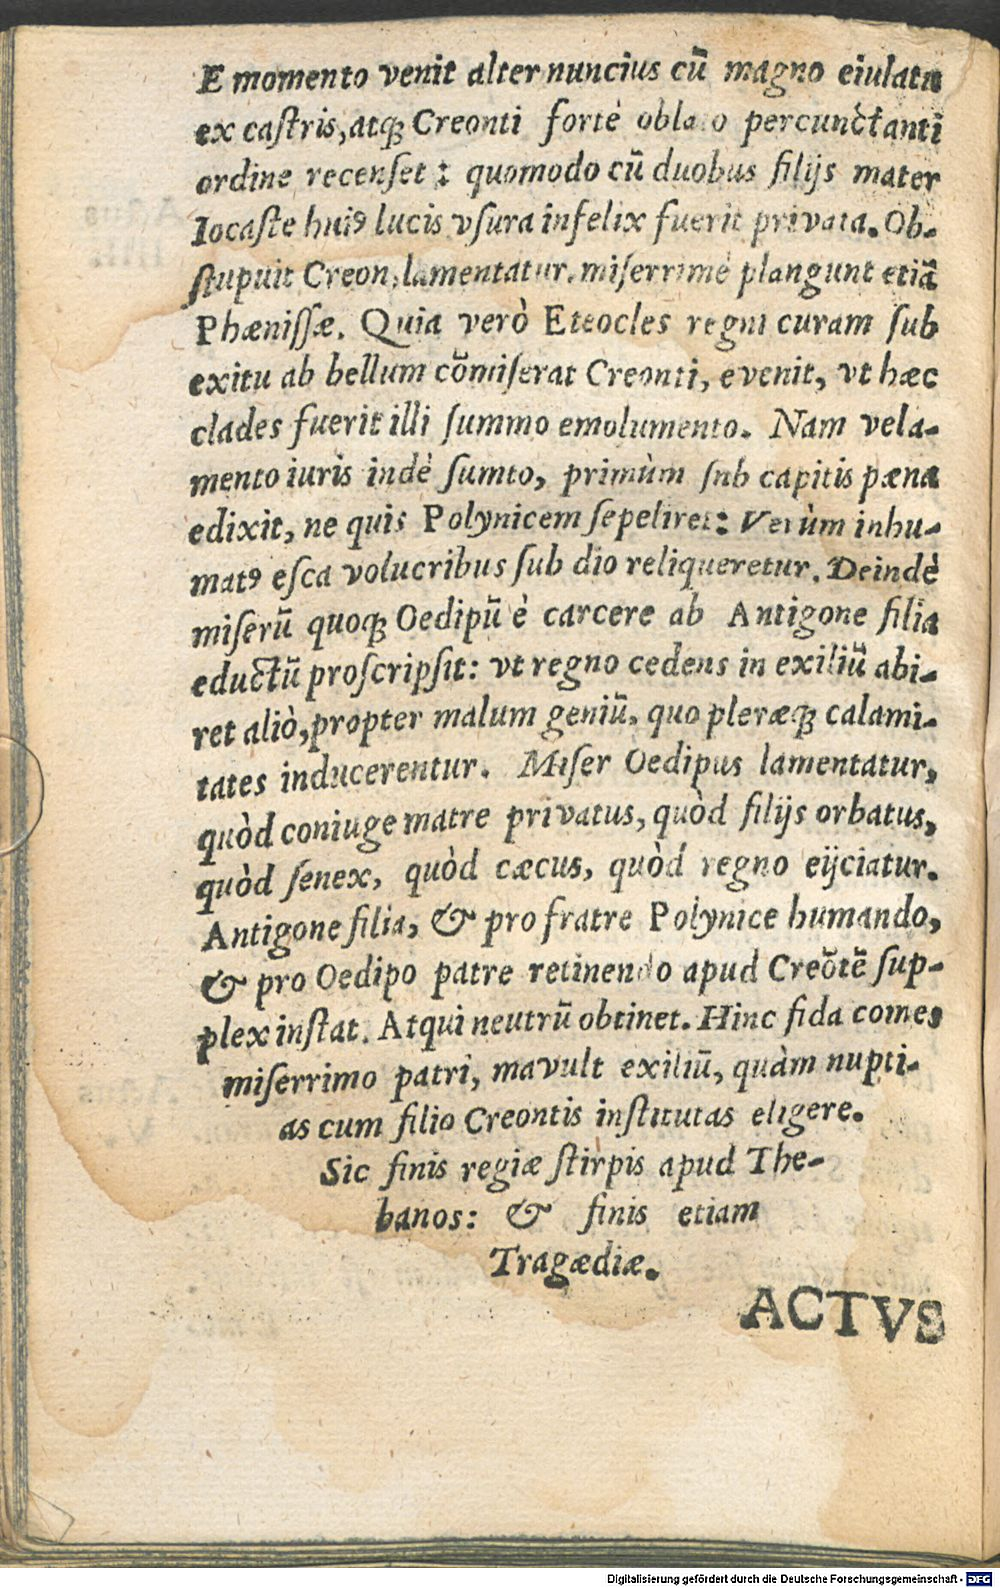 E momento venit alter nuncius cū magno eiulatu
ex castris, atq; Creonti fortè oblato percunctanti
ordine recenset: quomodo cū duobus filijs mater
Iocaste huiꝰ lucis vsura infelix fuerit privata. Ob-
stupuit Creon, lamentatur. miserrimè plangunt etiā
Phœnissæ. Quia verò Eteocles regni curam sub
exitu ab bellum cōmiserat Creonti, evenit, vt hæc
clades fuerit illi summo emolumento. Nam vela-
mento iuris indè sumto, primùm sub capitis pœna
edixit, ne quis Polynicem sepeliret: Verùm inhu-
matꝰ esca volucribus sub dio reliqueretur. Deindè
miserū quoq; Oedipū è carcere ab Antigone filia
eductū proscripsit: vt regno cedens in exiliū abi-
ret aliò, propter malum geniū, quo pleræq; calami-
tates inducerentur. Miser Oedipus lamentatur,
quòd coniuge matre privatus, quòd filijs orbatus,
quòd senex, quòd cæcus, quòd regno eijciatur.
Antigone filia, & pro fratre Polynice humando,
& pro Oedipo patre retinendo apud Creōtē sup-
plex instat. Atqui neutrū obtinet. Hinc fida comes
miserrimo patri, mavult exiliū, quàm nupti-
as cum filio Creontis institutas eligere.
Sic finis regiæ stirpis apud The-
banos: & finis etiam
Tragædiæ.
ACTVS
Digitalisierung gefördert durch die Deutsche Forschungsgemeinschaft - DFG